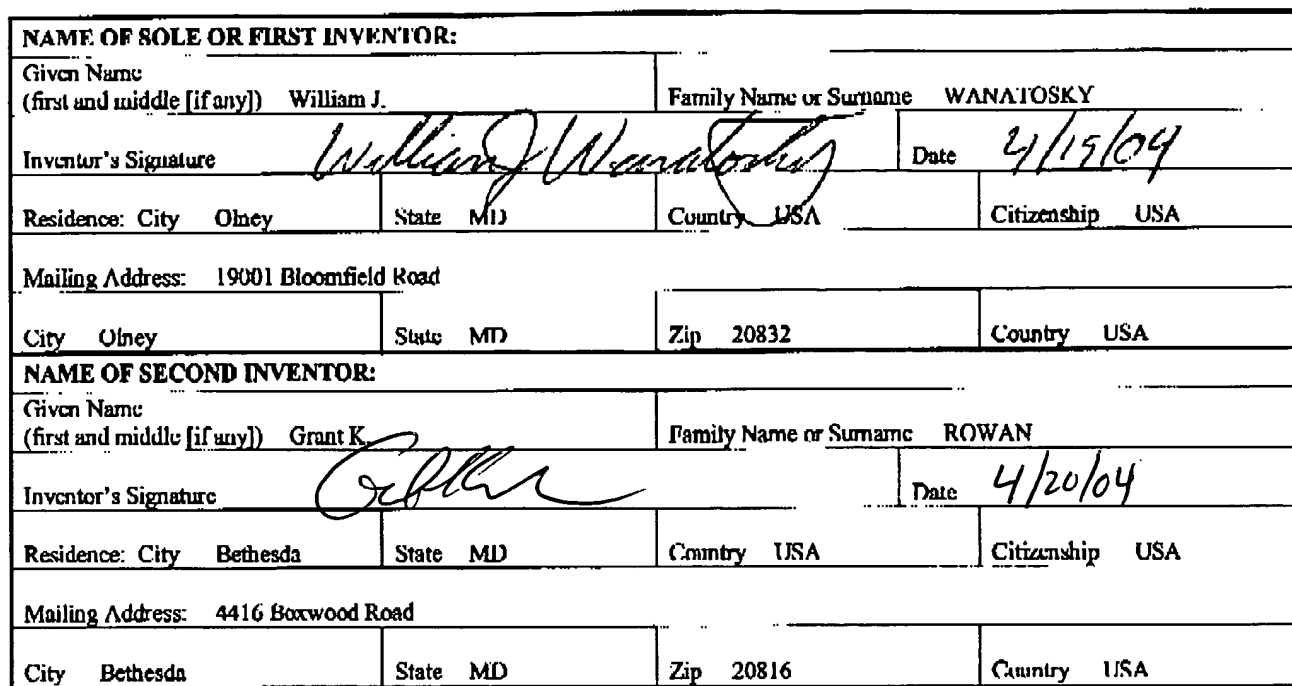 NAME OF SOLE OR FIRST INVENTOR:
Given Name
(first and middle [if any]) William J. Family Name or Surname WANATOSKY
Inventor's Signature William J Wanatosky Date 4/19/04
Residence: City Olney State MD Country USA Citizenship USA
Mailing Address: 19001 Bloomfield Road
City Olney State MD Zip 20832 Country USA
NAME OF SECOND INVENTOR:
Given Name
(first and middle [if any]) Grant K. Family Name or Surname ROWAN
Inventor's Signature Date 4/20/04
Residence: City Bethesda State MD Country USA Citizenship USA
Mailing Address: 4416 Boxwood Road
City Bethesda State MD Zip 20816 Country USA